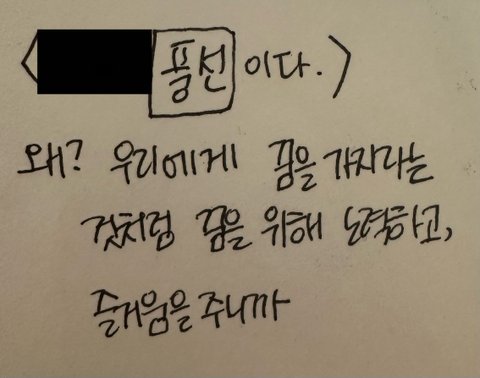 <풍선이다.>
왜? 우리에게 꿈을 가지라는
것처럼 꿈을 위해 노력하고,
즐거움을 주니까